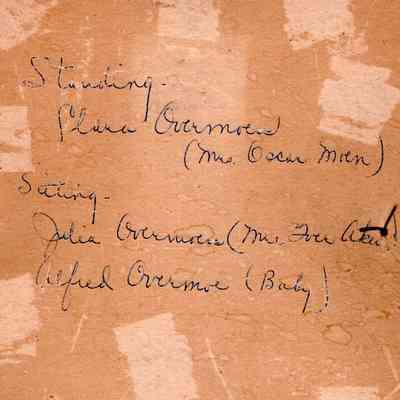 Standing -
Clara Overmoen
(Mrs. Oscar Moen)
Sitting -
Julia Overmoen (Mrs. Iver
Alfred Overmoe (Baby)